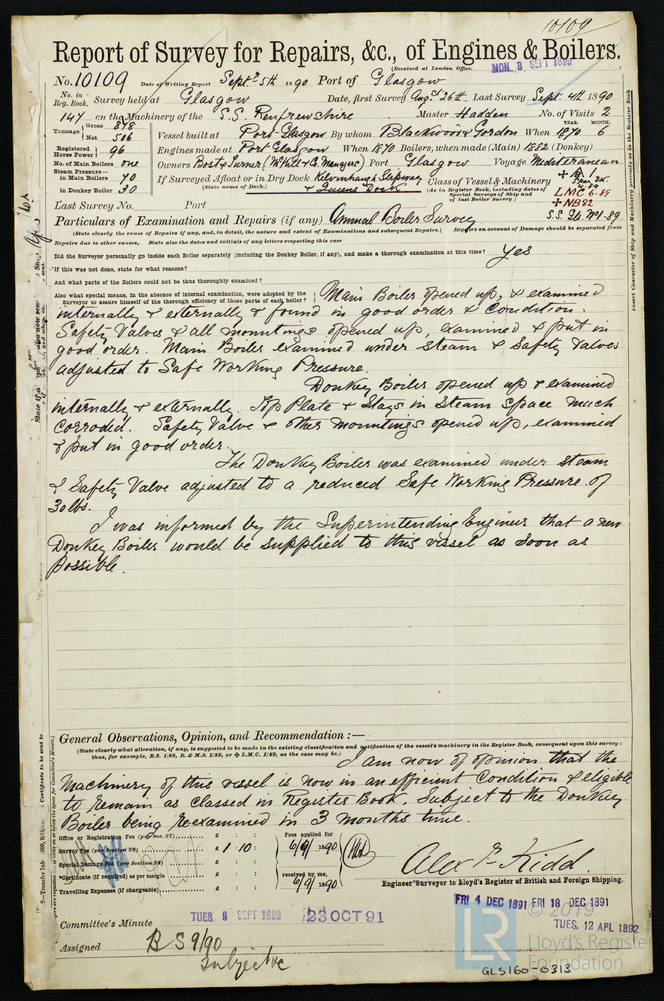 10109
Report of Survey for Repairs, &c., of Engines & Boilers.
(Received at London Office. MON. 8 SEPT 1890
No. 10109 Date of Writing Report Septr 5th 1890 Port of Glasgow
No. in Reg. Book. Survey held at Glasgow Date, first Survey Augt 26th Last Survey Sept. 4th 1890
147 on the Machinery of the S.S. Renfrewshire Master Hadden No. of Visits 2
Tonnage Gross 878 Net 506
Vessel built at Port Glasgow By whom Blackwood & Gordon When YEAR. 1870 MONTH. 6
Registered Horse Power 96 Engines made at Port Glasgow When 1870 Boilers, when made (Main) 1882 (Donkey)
No. of Main Boilers one Owners Port Glasgow Voyage Mediterranean
Steam Pressure— in Main Boilers 70 If Surveyed Afloat or in Dry Dock Kelvinhaugh Slipway
(State name of Dock.) & Queens Dock
in Donkey Boiler 30
Class of Vessel & Machinery
(As in Register Book, including dates of Special Surveys of Ship and of last Boiler Survey.)
LMC 6.89
+NB82
S.S. No1-89
Last Survey No. Port
Particulars of Examination and Repairs (if any) Annual Boiler Survey
(State clearly the cause of Repairs if any, and, in detail, the nature and extent of Examinations and subsequent Repairs.) Reports on account of Damage should be separated from
Repairs due to other causes, State also the dates and initials of any letters respecting this case
Did the Surveyor personally go inside each Boiler separately (including the Donkey Boiler, if any), and make a thorough examination at this time? Yes
If this was not done, state for what reasons?
And what parts of the Boilers could not be thus thoroughly examined?
Also what special means, in the absence of internal examination, were adopted by the
Surveyor to assure himself of the thorough efficiency of those parts of each boiler?
Main Boiler opened up, & examined
internally & externally & found in good order & condition.
Safety Valves & all mountings opened up, examined & put in
good order. Main Boiler examined under steam & Safety Valves
adjusted to Safe Working Pressure.
Donkey Boiler opened up & examined
internally & externally. Top Plate & Stays in Steam Space much
corroded. Safety Valve & other mountings opened up, examined
& put in good order.
The Donkey Boiler was examined under steam
& Safety Valve adjusted to a reduced Safe Working Pressure of
30lbs.
I was informed by the Superintending Engineer that a new
Donkey Boiler would be supplied to this vessel as soon as
possible.
General Observations, Opinion, and Recommendation :—
(State clearly what alteration, if any, is suggested to be made in the existing classification and notification of the vessel's machinery in the Register Book, consequent upon this survey;
thus, for example, B.S. 1/89, B. & M.S. 1/89, or + L.M.C. 1/89, as the case may be.)
I am now of opinion that the
Machinery of this vessel is now in an efficient condition & eligible
to remain as classed in Register Book, Subject to the Donkey
Boiler being reexamined in 3 months time.
Office or Registration Fee (per Sec. 27)
Survey Fee (per Section 28) £ 1 : 10 :
Special Damage Fee (per Section 28)
Certificate (if required) as per margin
Travelling Expenses (if chargeable)
Fees applied for
6/9/1890
received by me,
6/9/1890
Alex F. Kidd
Engineer Surveyor to Lloyd's Register of British and Foreign Shipping.
Committee's Minute TUES 9 SEPT 1890 23 OCT 91
FRI 4 DEC 1891 FRI 18 DEC 1891
TUES. 12 APL 1892
Assigned BS 9/90
subject &c
LR © 2019
Lloyd's Register
Foundation
GLS160-0313